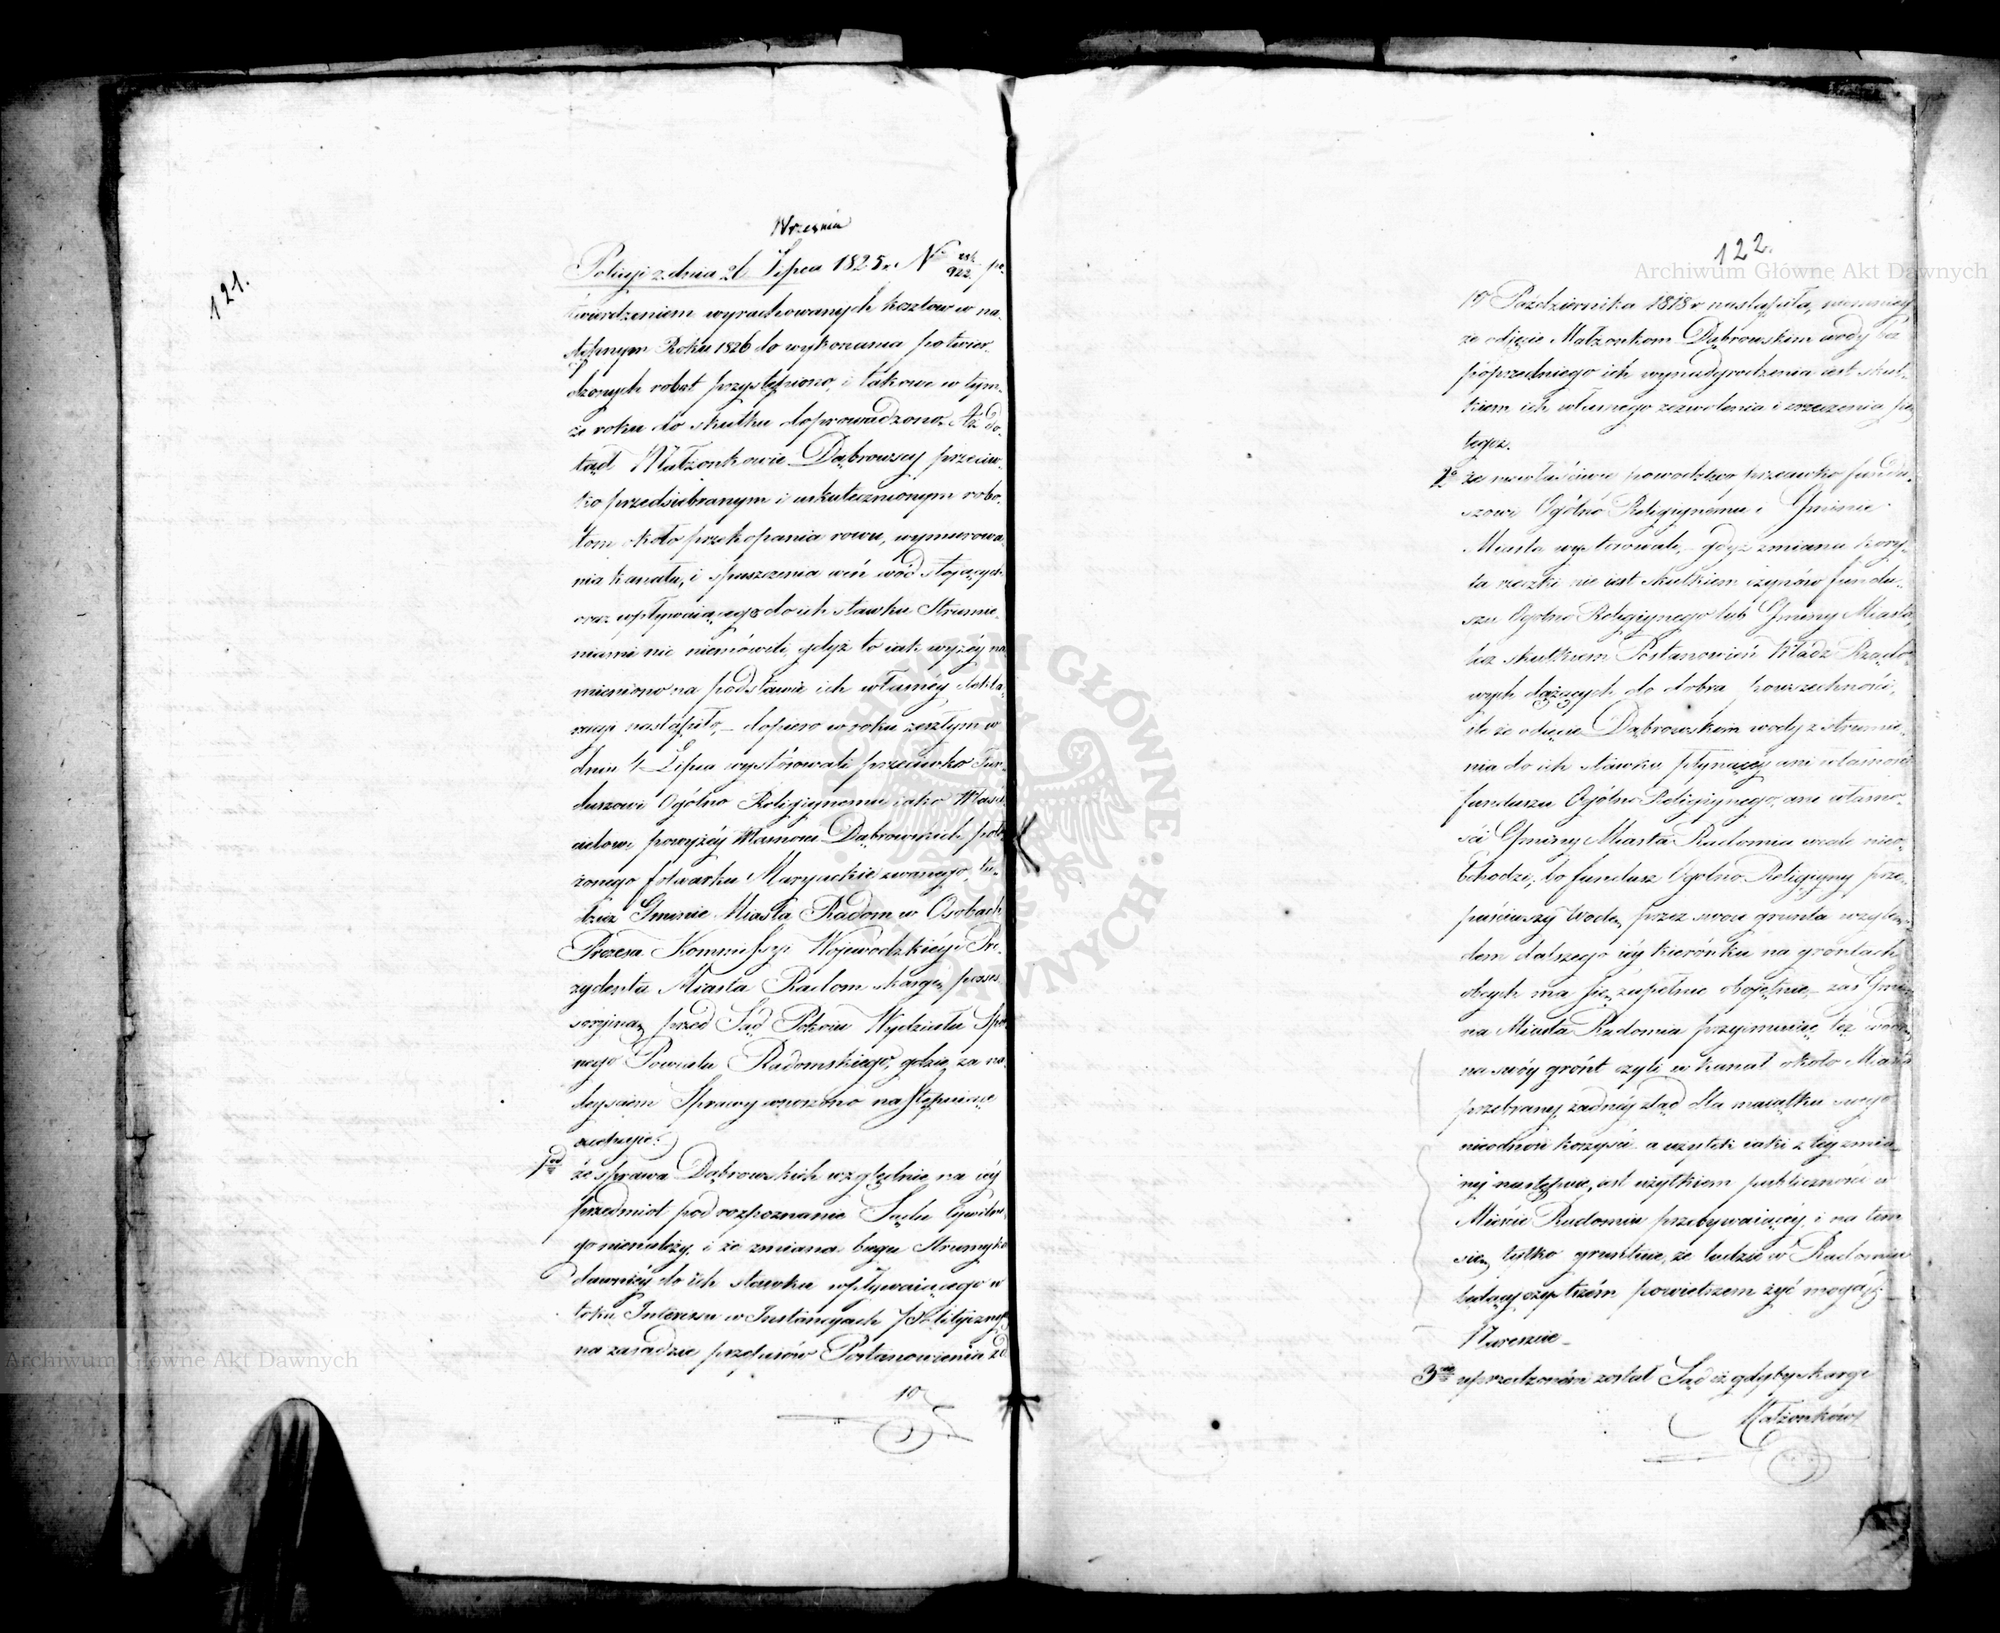 121.
Września
Policyi z dnia 26 Lipca 1825 r. N 922 po-
twierdzeniem wyrachowanych kosztów w na-
stępnym Roku 1826 do wykonania potwier-
dzonych robot przystąpiono, i takowe w tym-
że roku do skutku doprowadzono. Aż do-
tąd Małżonkowie Dąbrowscy przeciw-
ko przedsiebranym i uskutecznionym robo-
tom około przekopania rowu, wymurowa-
nia kanału, i spuszczenia weń wód stojących
oraz wpływaiącego do ich stawku Strumie-
niami nic niemówili, gdyż to iak wyżéy na-
mieniono na podstawie ich własnéy dekla-
racyi nastąpiło, – dopiero w roku zeszłym w
dniu 4 Lipca wystąpowali przeciwko Fun-
duszowi Ogólno Religiynemu iako Właści-
cielowi powyżéy Dąbrowskich poło-
żonego folwarku Maryackie zwanego, tu-
dzież Gminie Miasta Radom w Osobach
Prezesa Kommissyi Wojewódzkiéy i Pre-
zydenta Miasta Radom skargę posses-
soryiną przed Sąd Pokoiu Wydziału Spor-
nego Powiatu Radomskiego, gdzie za na-
deyściem Sprawy wniesiono następuiące
1od że sprawa Dąbrowskich względnie na iéy
przedmiot pod rozpoznanie Sądu Cywilne-
go nienależy, i że zmiana biegu Strumyka
dawniéy do ich stawku wpływaiącego w
toku Interessu w Instancyach Politycznych
na zasadzie przepisów Postanowienia z d.
10
122.
10 Października 1818 r. nastąpiła, niemniéy
że odjęcie Małżonkom Dąbrowskim wody bez
poprzedniego ich wynadgrodzenia iest skut-
kiem ich własnego zezwolenia i zrzeczenia się
tegoż.
2o że niewłaściwie powództwo przeciwko fundu-
szowi Ogólno Religiynemu i Gminie
Miasta wystosowali, – gdyż zmiana kory-
ta rzeczki nie iest skutkiem czynów fundu-
szu Ogólno Religiynego lub Gminy Miasta,
lecz skutkiem Postanowień Władz Rządo-
wych dążących do dobra powszechności,
ile że odięcie Dąbrowskim wody z strumie-
nia do ich stawku płynącéy ani własności
funduszu Ogólno Religiynego, ani własno-
ści Gminy Miasta Radomia wcale nieo-
bchodzi; bo fundusz Ogólno Religiyny prze-
puściwszy Wodę przez swoie grunta wzglę-
dem dalszego iéy kierónku na gróntach
obcych ma się zupełnie oboiętnie, – zaś Gmi-
na Miasta Radomia przyimuiąc też wodę
na swóy grónt czyli w kanał około Miasta
przebrany żadnéy ztąd dla maiątku swego
nieodnosi korzyści a użytek iaki z téy zmia-
ny następuie, iest użytkiem publiczności w
Mieście Radomiu przebywaiącéy, i na tem
się tylko gruntuie, że ludzie w Radomiu
będący czystszém powietrzem żyć mogą;
Nareszcie –
3cie uprzedzonóm został Sąd iż gdyby skarga
Małżonków
Archiwum Główne Akt Dawnych
Archiwum Główne Akt Dawnych